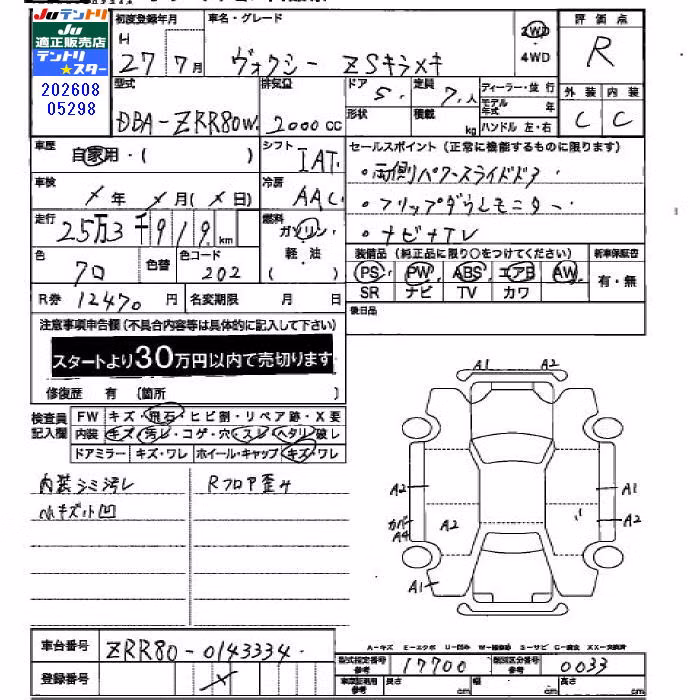 Juテントリ
Ju
適正販売店
テントリ
★スター
202608
05298
初度登録年月
H
27年7月
車名・グレード
ヴォクシー ZSキラメキ
2WD
4WD
評価点
R
外装 内装
C C
型式
DBA-ZRR80W
排気量
2000cc
ドア
5
定員
7人
形状
積載
kg
ディーラー・並行
モデル年式 年
ハンドル 左・右
車歴
自家用・( )
シフト
IAT
車検
×年×月(×日)
冷房
AAC
走行
25万3千919km
燃料
ガソリン
軽・油
( )
色
クロ
色替
色コード
202
R券 12470円
名変期限 月 日
セールスポイント(正常に機能するものに限ります)
・両側パワースライドドア
・フリップダウンモニター
・ナビ+TV
装備品(純正品に限り○をつけてください)
新車保証書
PS PW ABS エアB AW
有・無
SR ナビ TV カワ
後日品
注意事項申告欄(不具合内容等は具体的に記入して下さい)
スタートより30万円以内で売切ります
修復歴 有 〔箇所 〕
検査員記入欄
FW キズ・飛石・ヒビ割・リペア跡・X要
内装 キズ・汚レ・コゲ・穴・スレ・ヘタリ・破レ
ドアミラー キズ・ワレ ホイール・キャップ キズ・ワレ
内装シミ汚レ
小キズ小凹
Rフロア歪み
A1 A2
A2
A1
カバー
A4
A2
A2
A1
車台番号
ZRR80-0143334
登録番号
×
A-キズ E-エクボ U-凹み W-補修跡 S-サビ C-腐食 XX-交換済
型式指定番号
参考
17700
類別区分番号
参考
0033
車庫証明用
参考
長さ cm
幅 cm
高さ cm